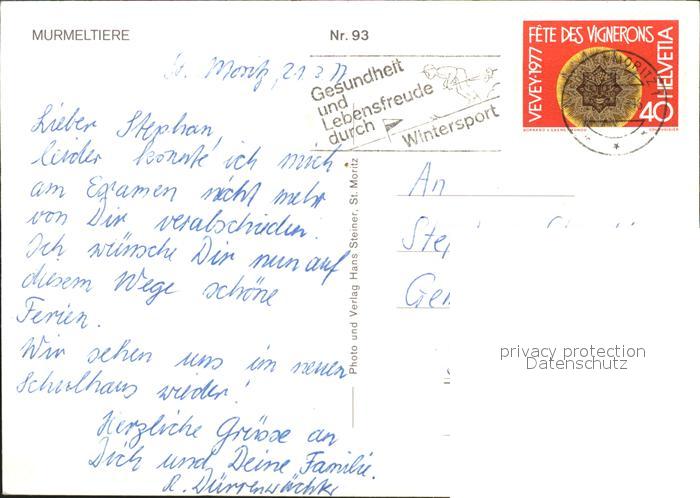 MURMELTIERE
Nr. 93
FÊTE DES VIGNERONS
VEVEY·1977
HELVETIA
40
Gesundheit
und
Lebensfreude
durch
Wintersport
St. Moritz, 21.3.77
Lieber Stephan,
leider konnte ich mich
am Examen nicht mehr
von Dir verabschieden.
Ich wünsche Dir nun auf
diesem Wege schöne
Ferien.
Wir sehen uns im neuen
Schulhaus wieder!
Herzliche Grüsse an
Dich und Deine Familie.
R. Dürrenwächter
Photo und Verlag Hans Steiner, St. Moritz
An
privacy protection
Datenschutz